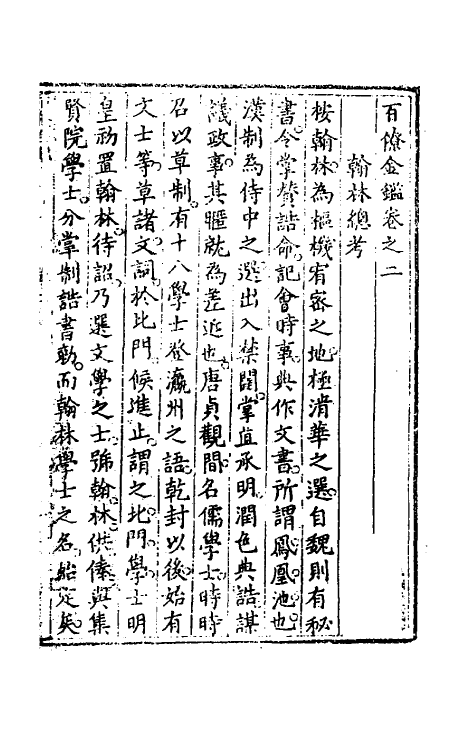 百僚金鑑卷之二
翰林總考
按翰林為樞機宥密之地極清華之選自魏則有秘
書令掌贊詔命記會時事典作文書所謂鳳凰池也
漢制為侍中之選出入禁闥掌直承明潤色典誥謀
議政事其職就為差近也唐貞觀間名儒學士時時
召以草制有十八學士登瀛州之語乾封以後始有
文士等草諸文詞於北門候進止謂之北門學士明
皇初置翰林待詔乃選文學之士號翰林供俸與集
賢院學士分掌制誥書勅而翰林學士之名始定矣